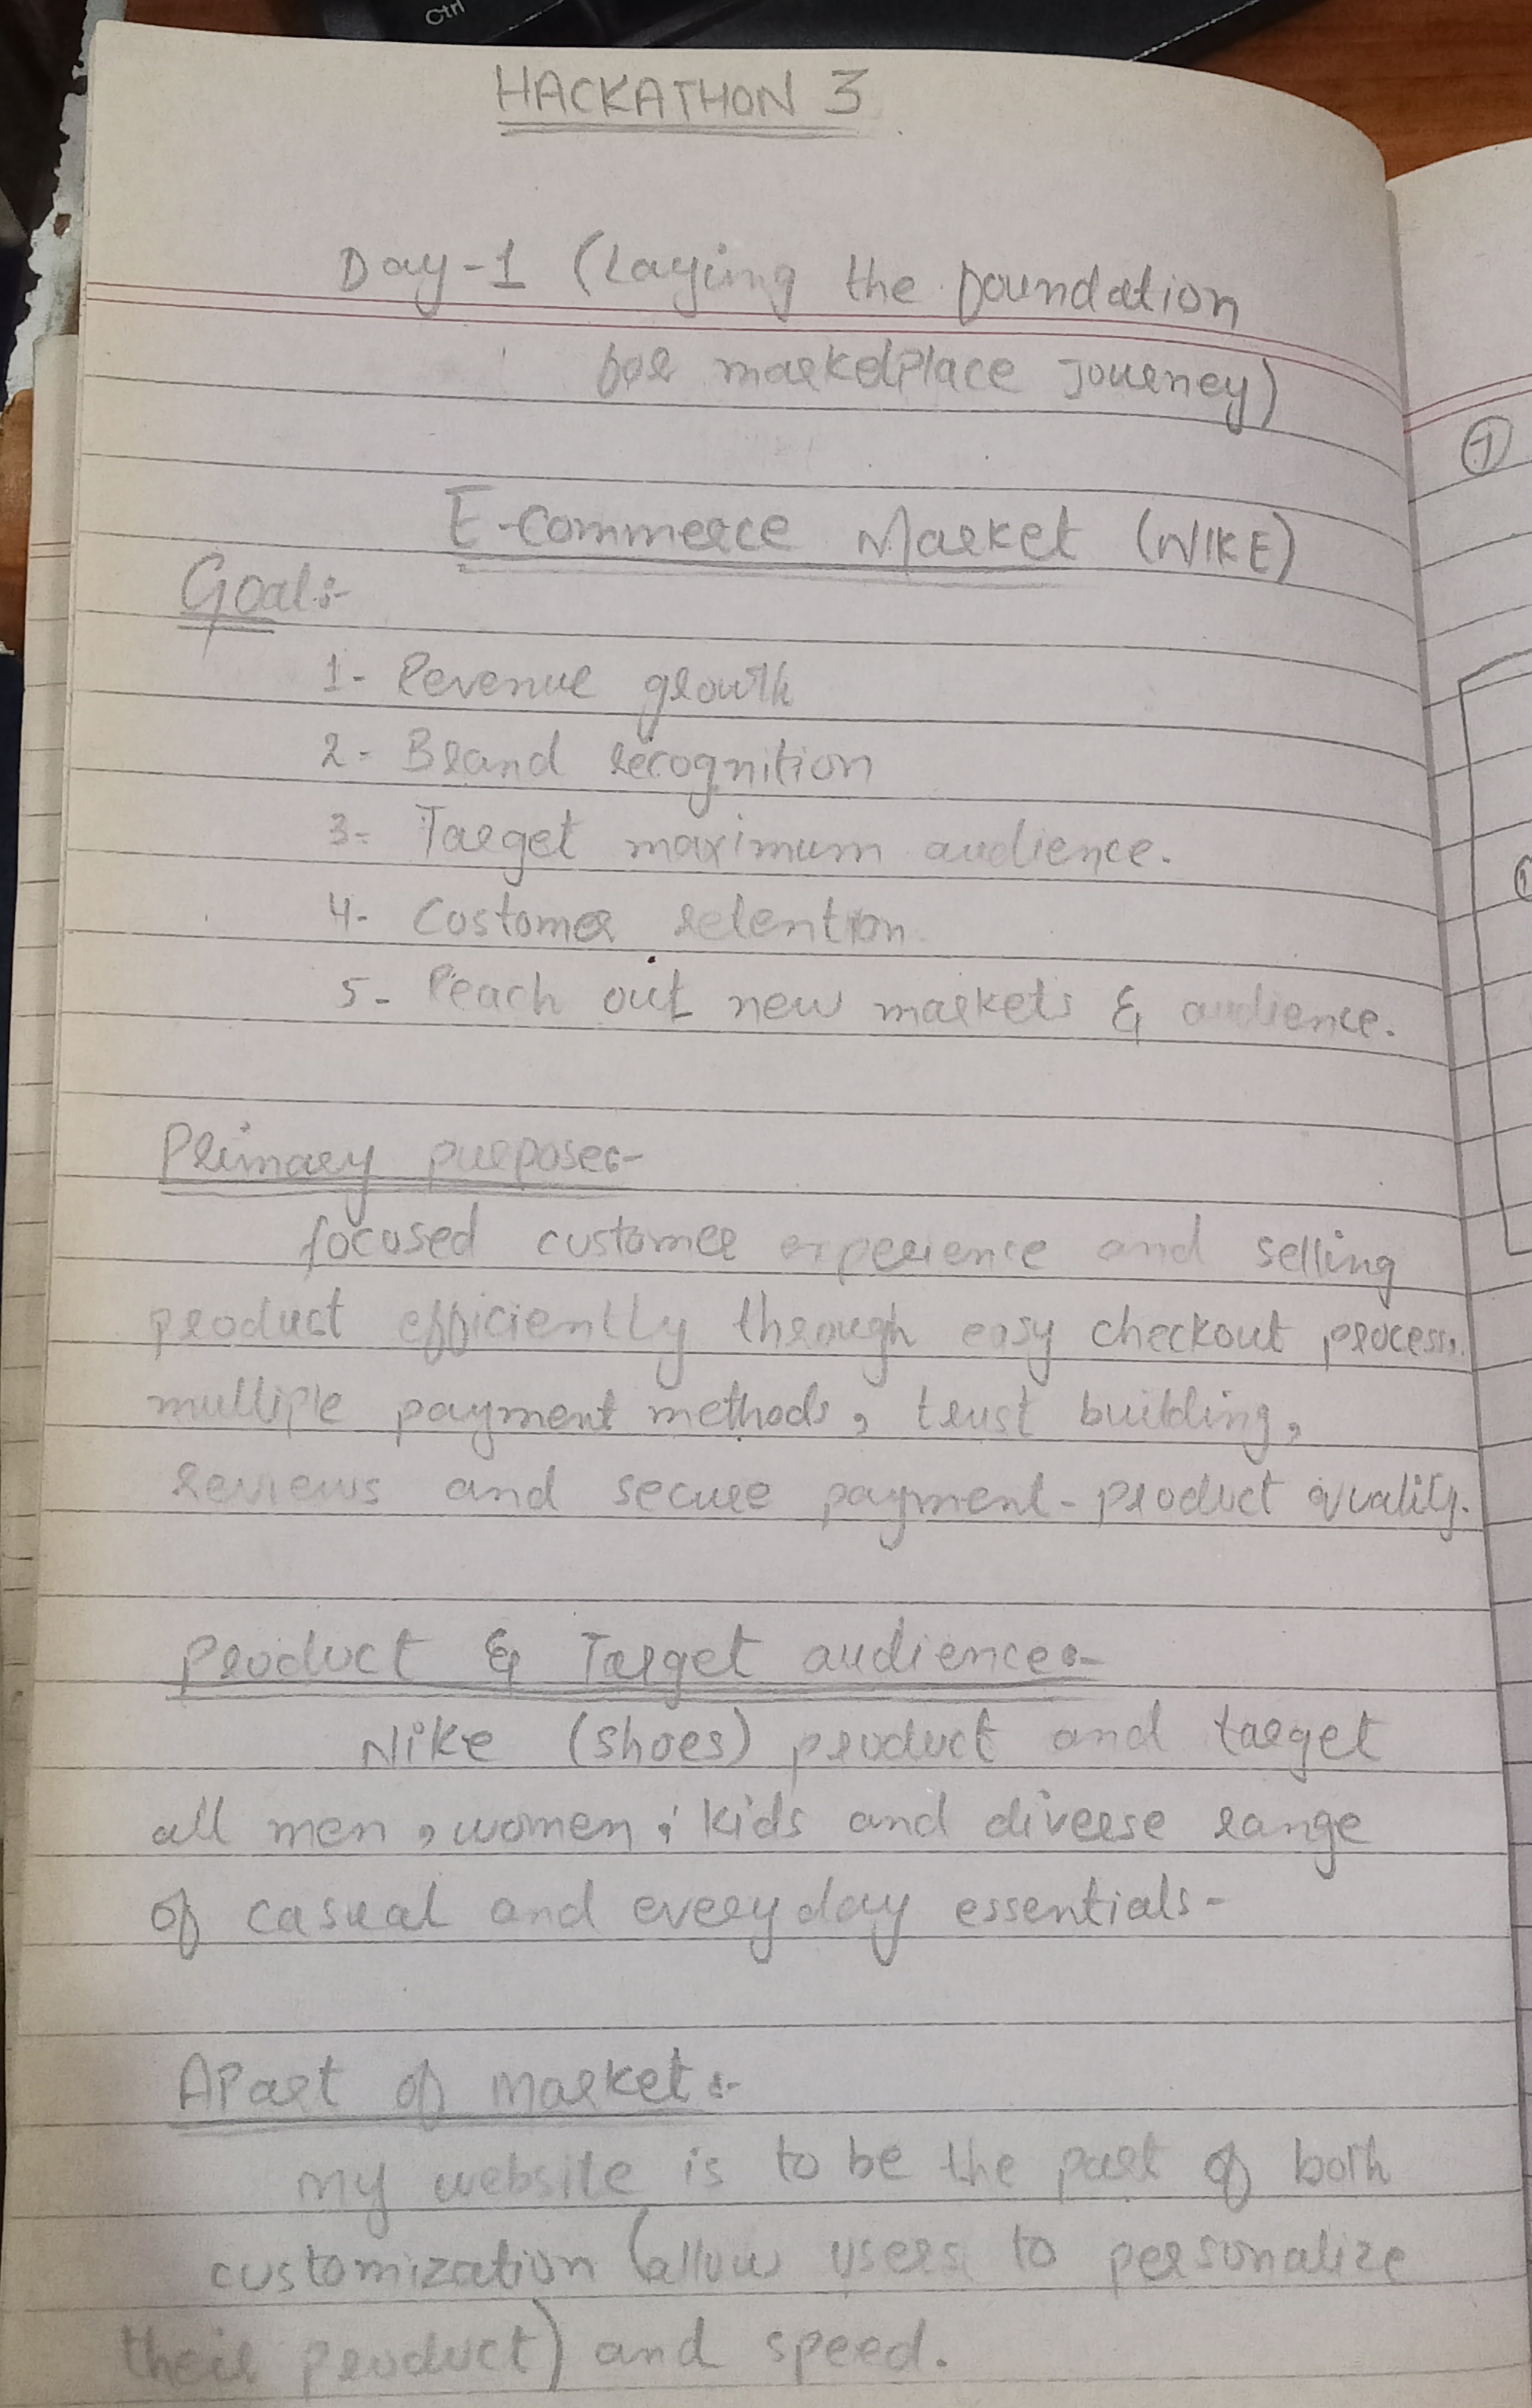 Ctrl
HACKATHON 3
Day-1 (Laying the foundation
for marketplace Journey)
E-Commerce Market (NIKE)
Goal:-
1- Revenue growth
2- Brand recognition
3- Target maximum audience.
4- Customer retention.
5- Reach out new markets & audience.
Primary purpose:-
focused customer experience and selling
product efficiently through easy checkout process,
multiple payment methods, trust building,
reviews and secure payment-product quality.
Product & Target audience:-
Nike (shoes) product and target
all men, women, kids and diverse range
of casual and everyday essentials-
APart of Market:-
My website is to be the part of both
customization (allow users to personalize
their product) and speed.
1
1